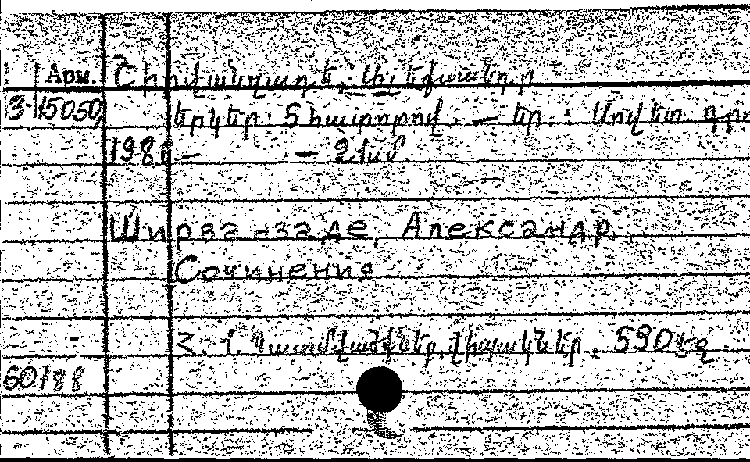 Арм. Շիրվանզադե, Ալեքսանդր
3 15050 Երկեր: 5 հատորով. — Եր.: Սովետ. գրո
198 — — 21սմ.
Ширванзаде, Александр
Сочинения
Հ. 1. Պատմվածքներ, վիպակներ. 590 էջ
60188